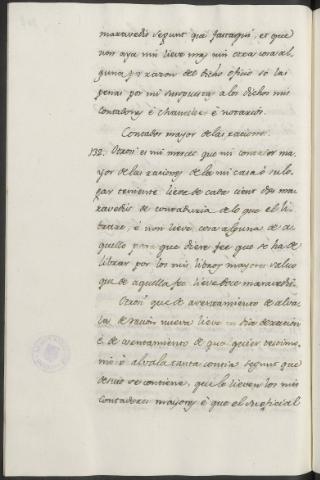 maravedis segunt que fasta aqui. et que
non aya nin lieve mas nin otra cosa al-
guna por razon del dicho oficio so las
penas por mi suspuestas a los dichos mis
contadores é chanceller é notarios.
Contador mayor de las raciones.
132. Otrosi es mi merced que mi contador ma-
yor de las raciones de la mi casa ó su lo-
gar teniente lieve de cada cient dos ma-
ravedis de contaduria de lo que el li-
brare, é non lieve cosa alguna de a-
quello para que diere fee que se ha de
librar por los mis libros mayores salvo
que de aquella fee lieve doce maravedis.
Otrosi que de asentamiento de alva-
la de racion nueva lieve un dia de racion
é de asentamiento de qua quier
nio é alvala tanta contia segunt que
desuso se contiene, que lo lieven los mis
contadores mayores é que el su oficial